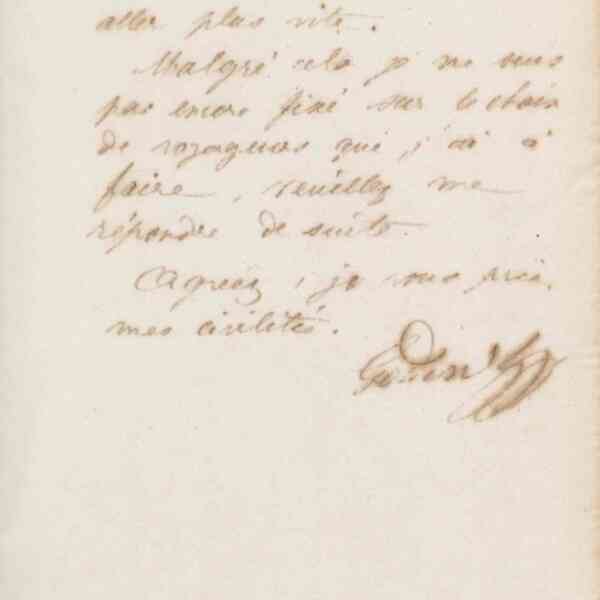 aller plus vite.
Malgré cela je ne suis
pas encore fixé sur le choix
de voyageurs que j'ai à
faire, veuillez me
répondre de suite.
Agréez, je vous prie,
mes civilités.
Godin